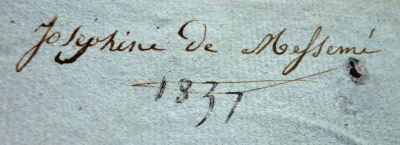 Joséphine de Messemé
1837